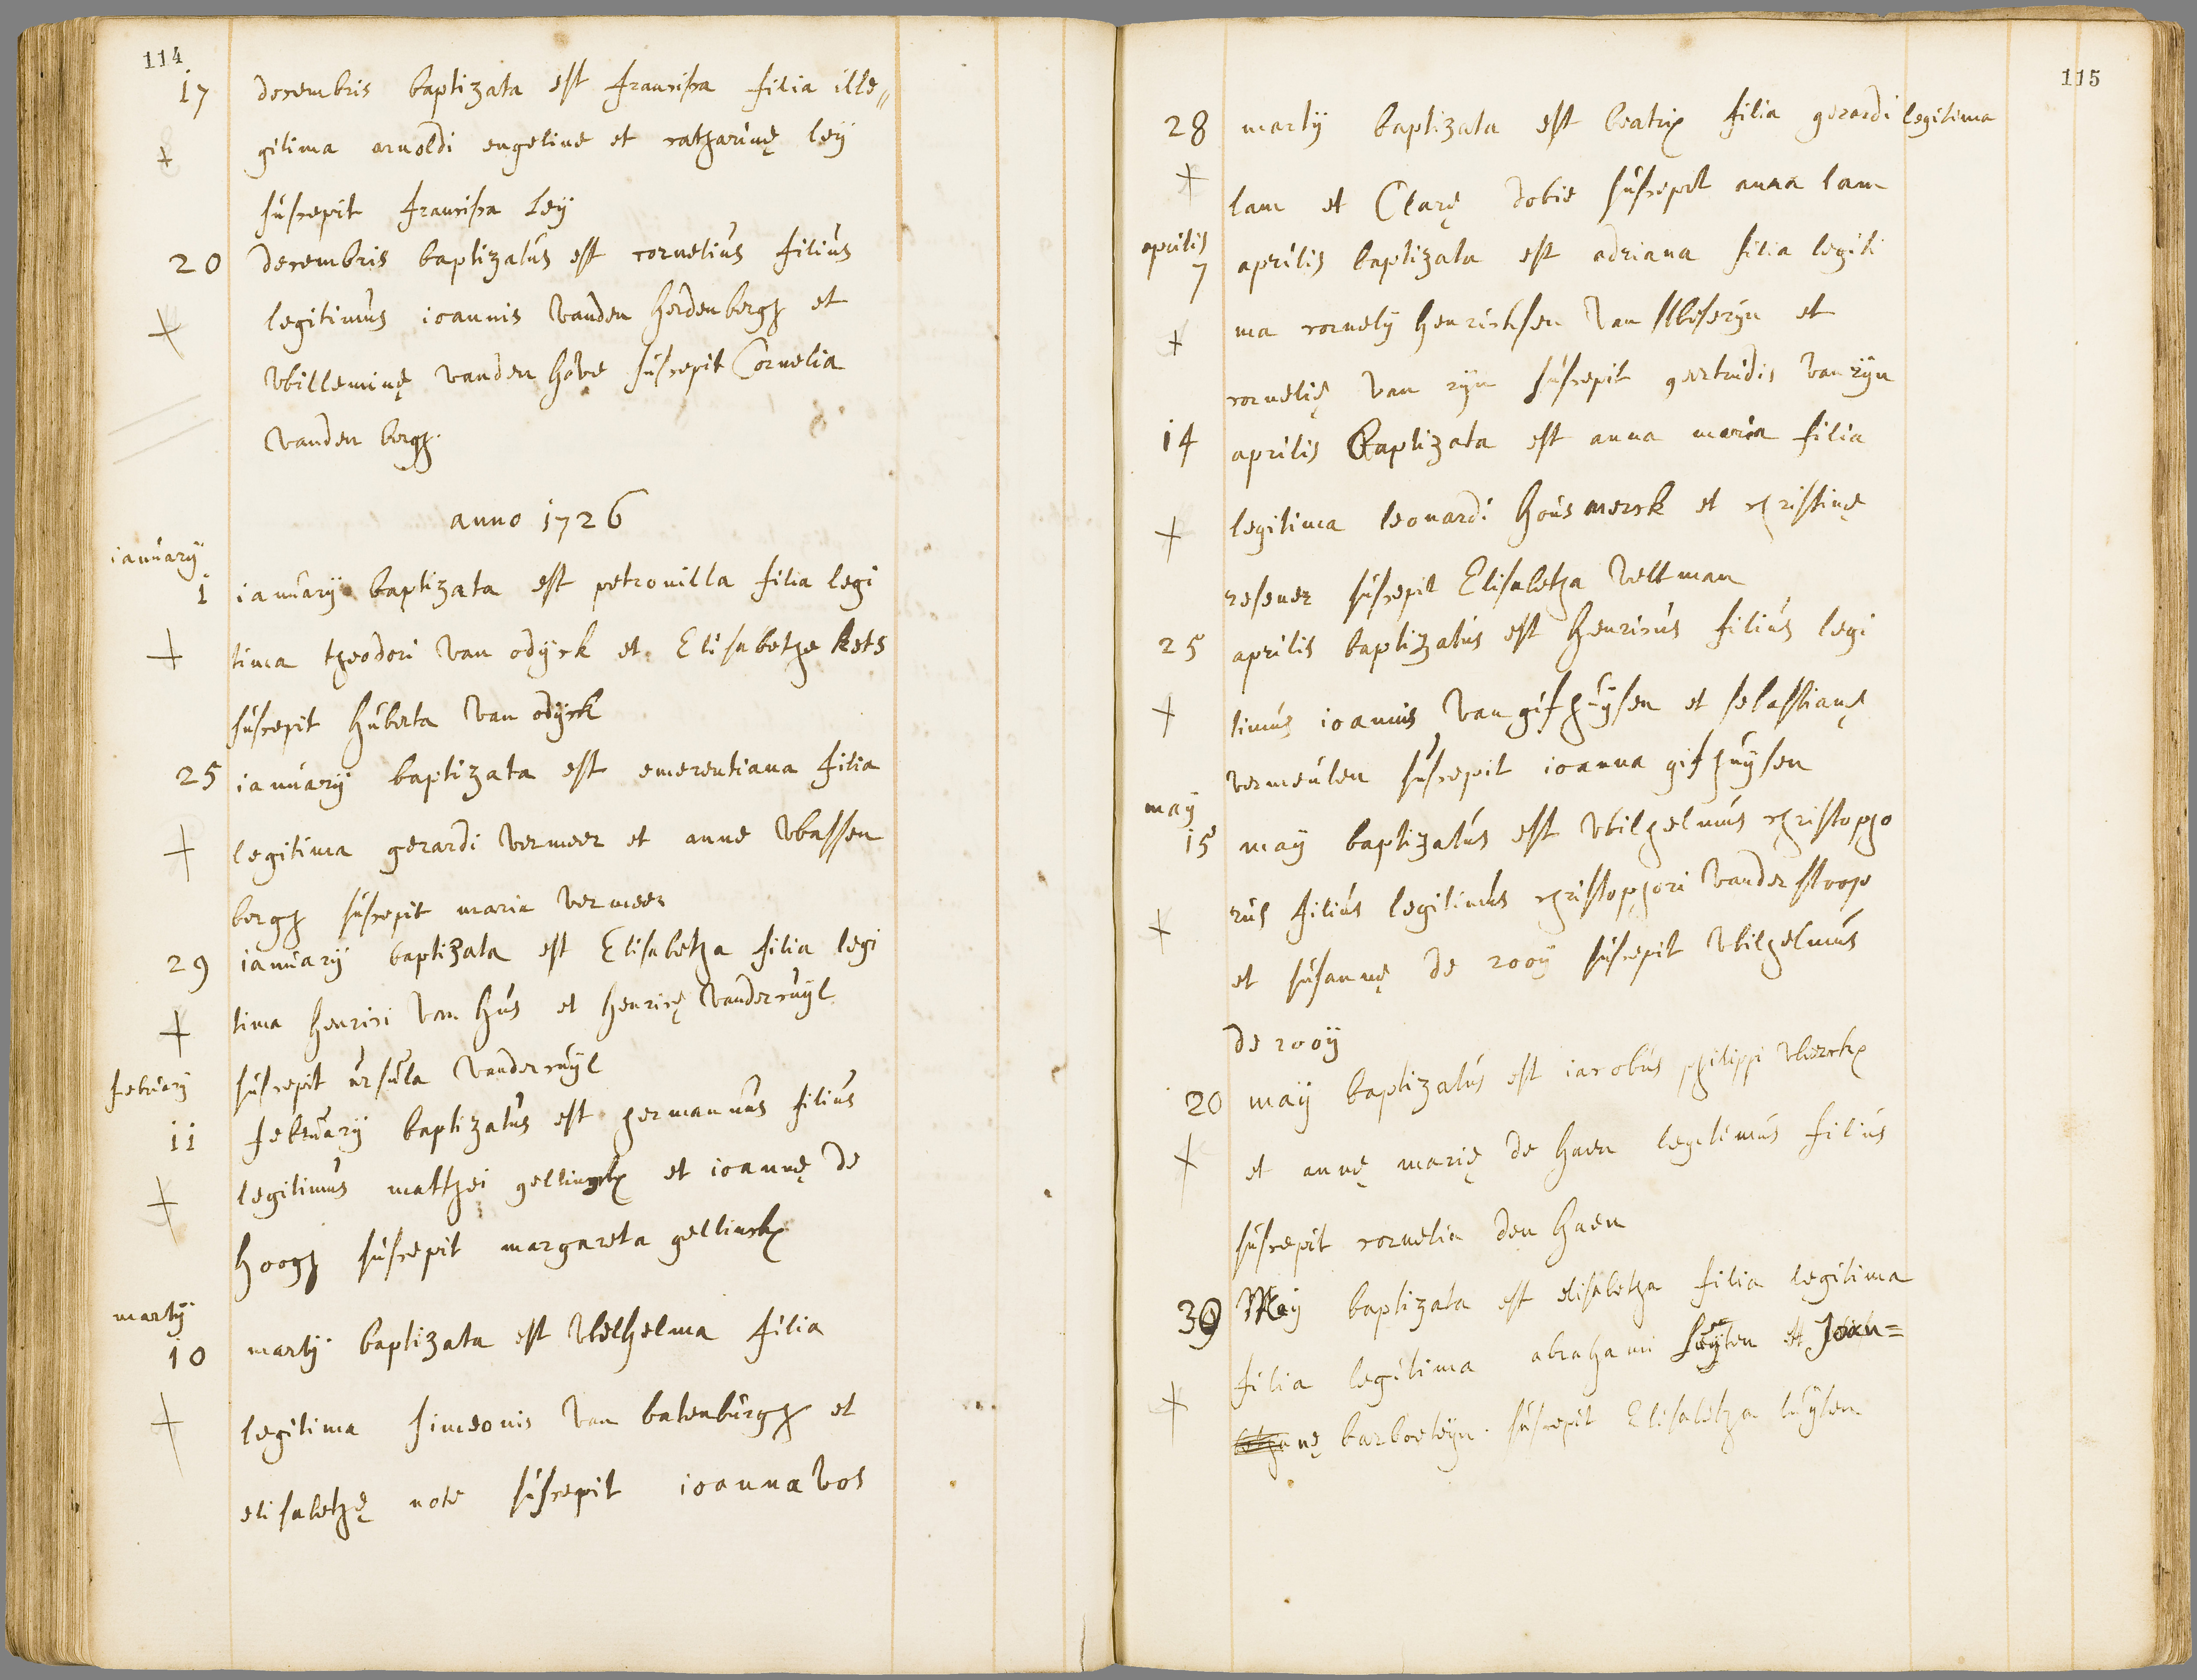 114
17 decembris baptizata est francisca filia ille„
gitima arnoldi engeline et catharinę leÿ
suscepit francisca Leÿ
20 decembris baptizatus est cornelius filius
legitimus ioannis vanden hordenbergh et
willeminę vanden hove suscepit Cornelia
vanden bergh.
anno 1726
ianuarÿ
1 ianuarÿ baptizata est petronilla filia legi
tima theodori van odÿck et Elisabethe kets
suscepit huberta van odÿck
25 ianuarÿ baptizata est emerentiana filia
legitima gerardi vermeer et anne wassen
bergh suscepit maria vermeer
29 ianuarÿ baptizata est Elisabetha filia legi
tima henrici van hus et henricę vandercuÿl
suscepit ursula vandercuÿl
februarÿ
11 februarÿ baptizatus est hermannus filius
legitimus matthei gellinckx et ioannę de
hoogh suscepit margareta gellinckx
martÿ
10 martÿ baptizata est welhelma filia
legitima simeonis van batenburgh et
elisabethę note suscepit ioanna vos
115
28 martÿ baptizata est beatrix filia gerardi legitima
lam et Clarę dobie suscepit anna lam
aprilis
7 aprilis baptizata est adriana filia legiti
ma cornelÿ henricksen van et
cornelię van rÿn suscepit geertrudis van rÿn
14 aprilis Baptizata est anna maria filia
legitima leonardi housmerck et christinę
resener suscepit Elisabetha veltman
25 aprilis baptizatus est henricus filius legi
timus ioannis van gifhuÿsen et sebastianę
vermeulen suscepit ioanna gifhuÿsen
maÿ
15 maÿ baptizatus est wilhelmus christopho
rus filius legitimus christophori vander stroop
et susannę de rooÿ suscepit wilhelmus
de rooÿ
20 maÿ baptizatus est iacobus philippi wierckx
et annę marię de haen legitimus filius
suscepit cornelia den haen
30 Maÿ baptizata est elisabetha filia legitima
filia legitima abrahami Luÿten et Joan=
nę barbosteÿn. suscepit Elisabetha luÿten